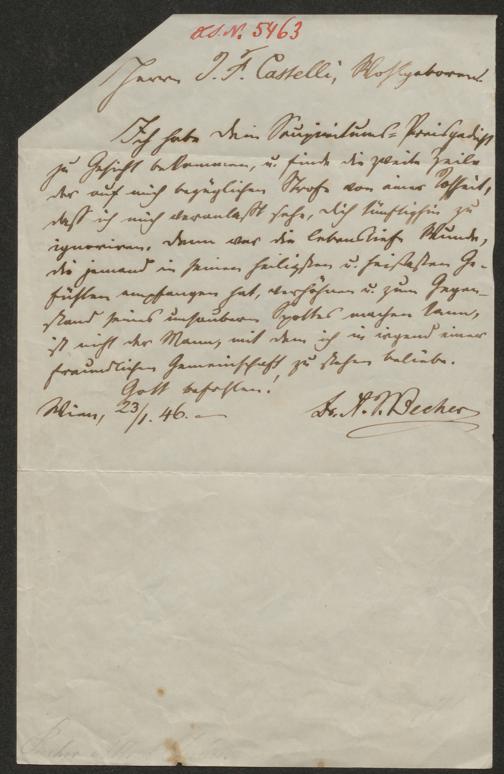 A.S.N. 5463
Herrn I. F. Castelli, Wohlgeboren.
Ich habe Dein Preisgedicht
zu Gesicht bekommen, u. finde die zweite Zeile
der auf mich bezüglichen Strofe von einer Rohheit,
daß ich mich veranlaßt sehe, Dich künftighin zu
ignoriren. Denn wer die lebenstiefe Wunde,
die jemand in seinen heiligsten u. heißesten Ge-
fühlen empfangen hat, verhöhnen u. zum Gegen-
stand seines unsaubern Spottes machen kann,
ist nicht der Mann, mit dem ich in irgend einer
freundlichen Gemeinschaft zu stehen beliebe.
Gott befohlen!
Wien, 23/1. 46. Dr. A. J. Becher